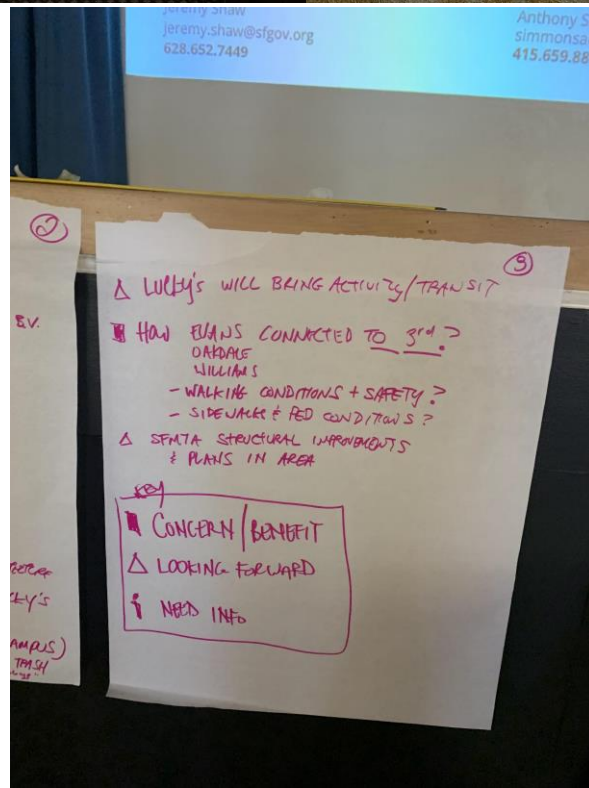 Jeremy Shaw
jeremy.shaw@sfgov.org
628.652.7449
Anthony S
simmonsa
415.659.88
2
EV.
KY'S
AMPUS)
TRASH
3
Δ LUCKY'S WILL BRING ACTIVITY/TRANSIT
■ HOW EVANS CONNECTED TO 3rd.?
OAKDALE
WILLIAMS
- WALKING CONDITIONS + SAFETY?
- SIDEWALKS & PED CONDITIONS?
Δ SFMTA STRUCTURAL IMPROVEMENTS
& PLANS IN AREA
KEY
■ CONCERN/BENEFIT
Δ LOOKING FORWARD
i NEED INFO